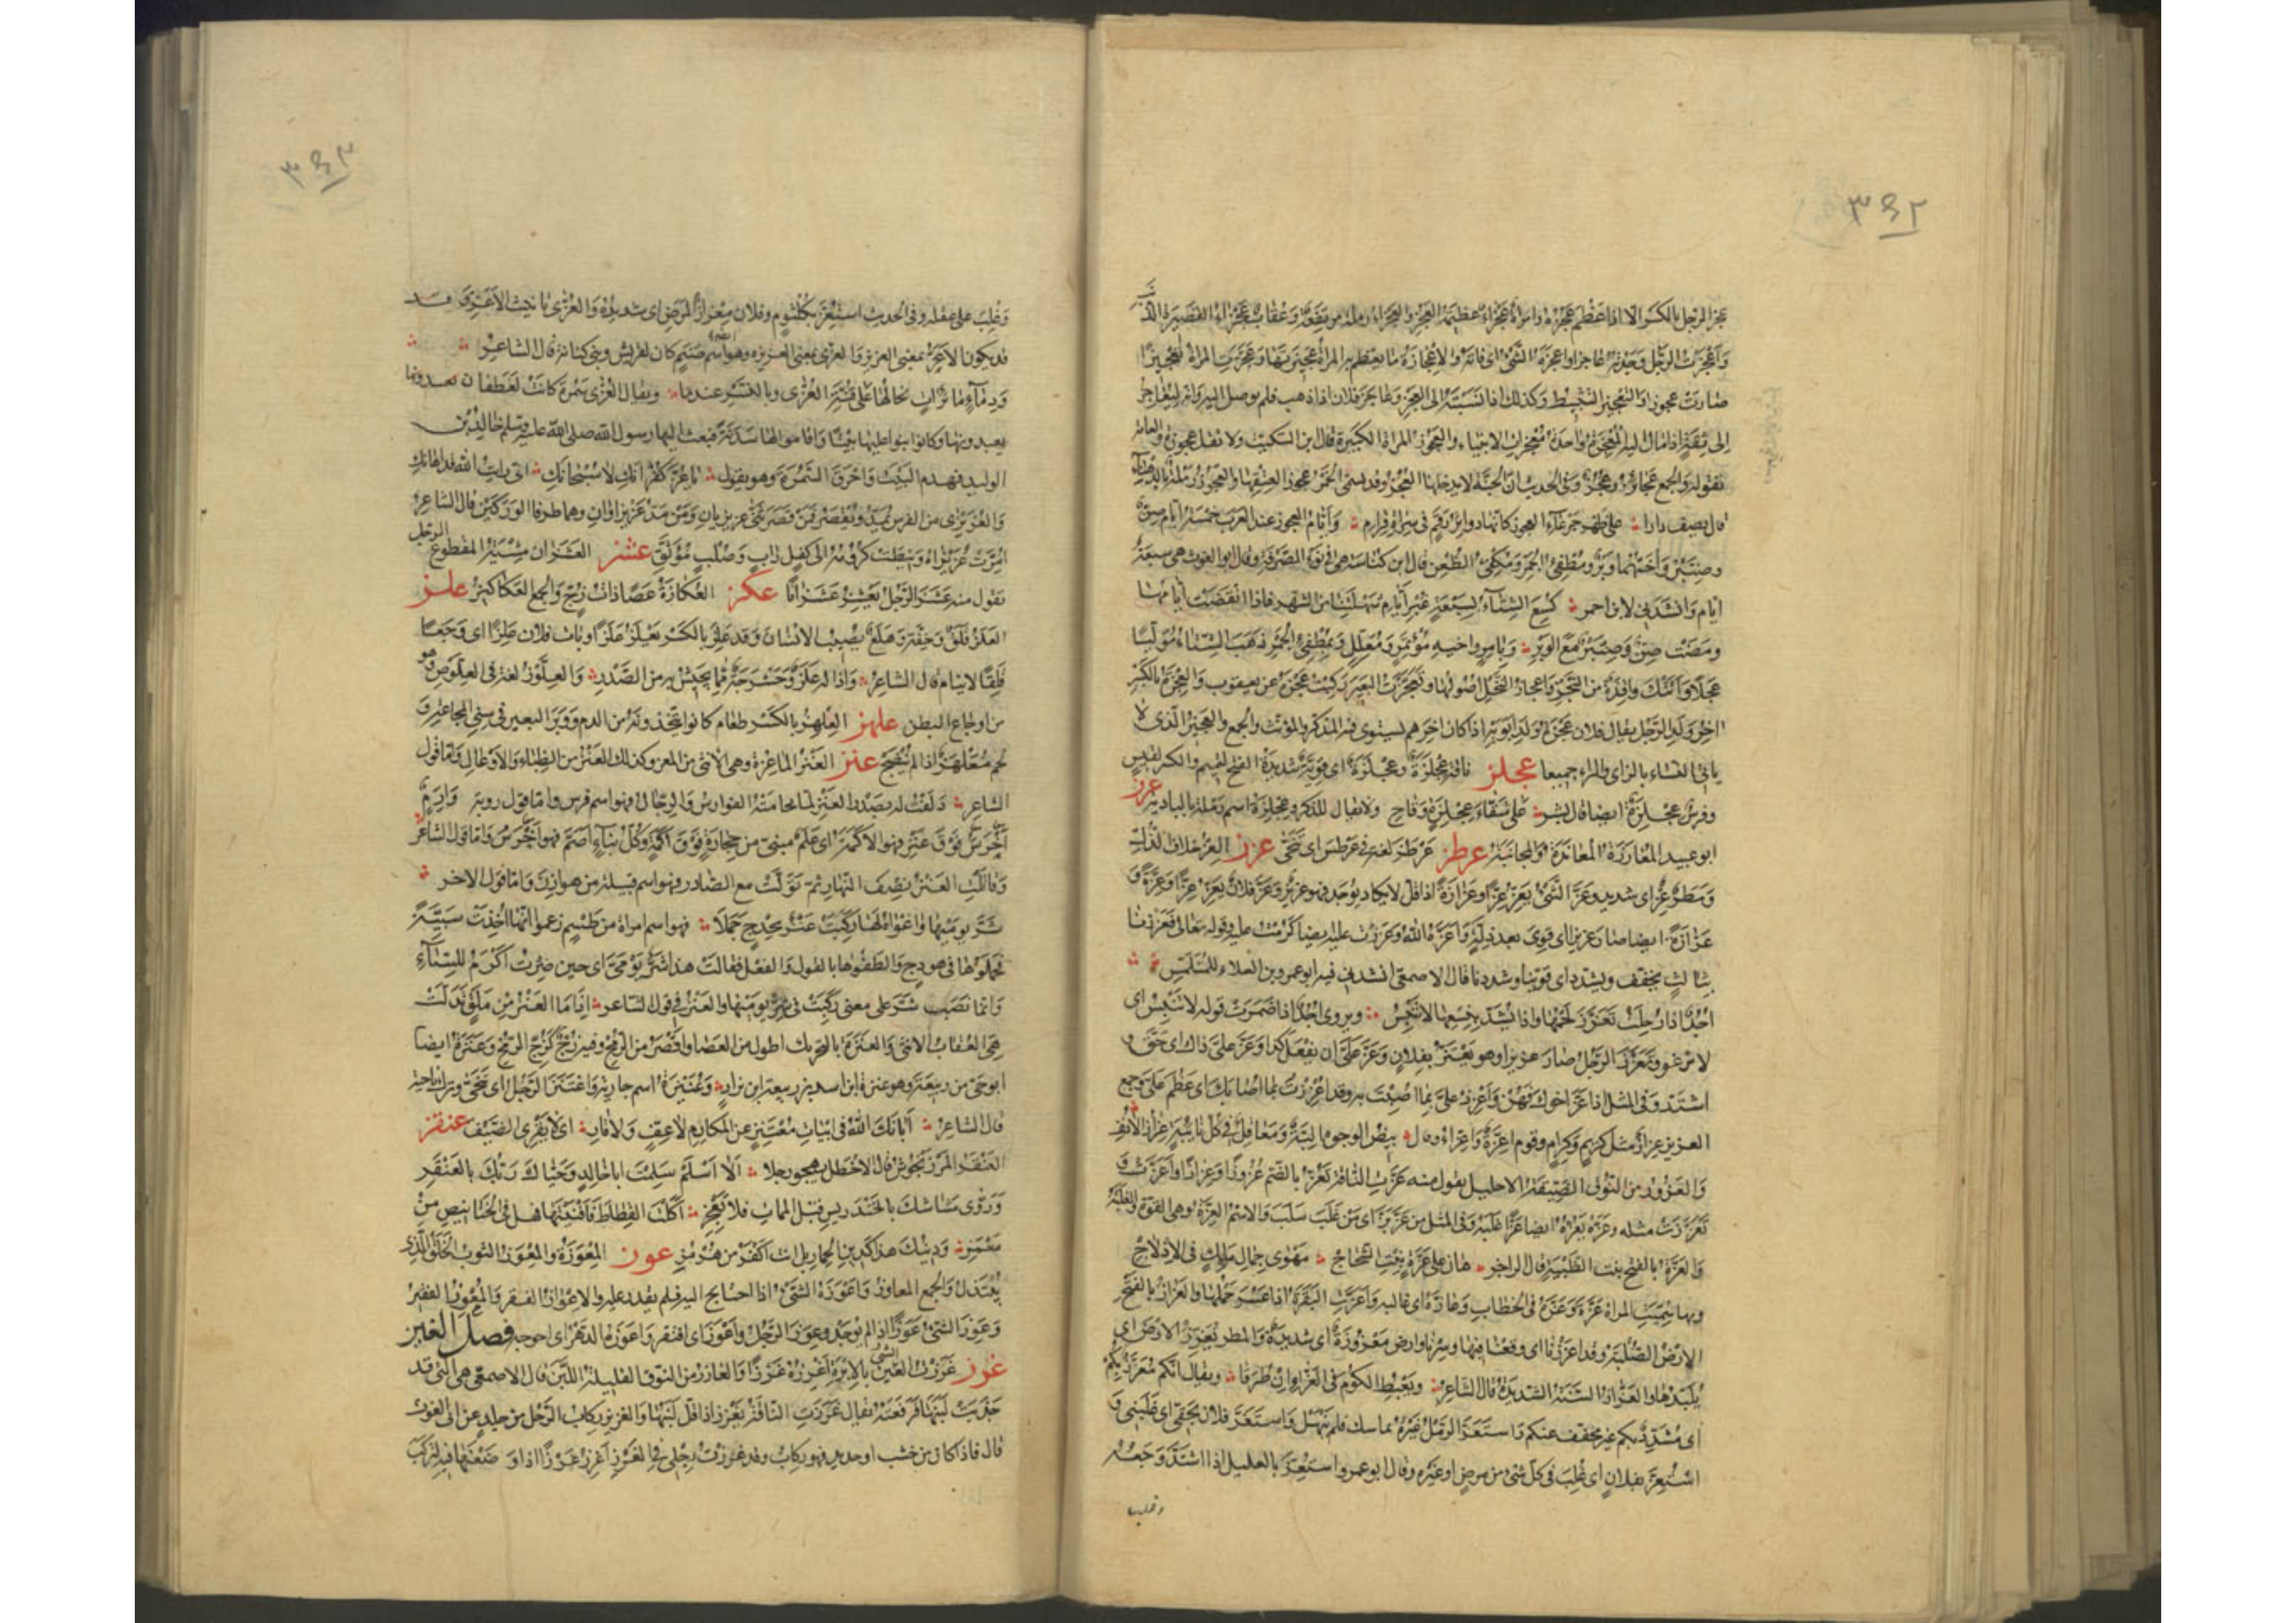 ٣٤٢
عجز الرجل بالكسر الا اذا عظم عجزه وامراة عجزاء عظيمة العجز والعجزاء رملة مرتفعة وعقاب عجزاء القصيرة الذنب
واعجزت الرجل وجدته عاجزا واعجزه الشئ اى فاته والاعجازة ما يعظم به المراة عجيزتها وعجزت المراة تعجيزا
صارت عجوزا والتعجيز التثبيط وكذلك اذا نسبته الى العجز وعاجز فلان اذا ذهب فلم يوصل اليه وانه ليعاجز
الى ثقة اذا مال اليه المعجزة واحدة معجزات الانبياء والعجوز المراة الكبيرة قال ابن السكيت ولا تقل عجوزة والعامة
تقوله والجمع عجائز وعجز وفى الحديث ان الجنة لا يدخلها العجز وقد يسمى الخمر عجوزا لعتقها والعجوز رملة بالدهناء
قال يصف دارا على ظهر جرعاء العجوز كانها دوائر رقم فى سراة قرام وايام العجوز عند العرب خمسة ايام صن
وصنبر واخيهما وبر ومطفئ الجمر ومكفئ الظعن قال ابن كناسة هى فى نوء الصرفة وقال ابو الغوث هى سبعة
ايام وانشدنى لابن احمر كسع الشتاء بسبعة غبر ايام شهلتنا من الشهر فاذا انقضت ايامها
ومضت صن وصنبر مع الوبر وبامر واخيه مؤتمر ومعلل وبمطفئ الجمر ذهب الشتاء موليا
عجلا واتتك واقدة من النجر واعجاز النخل اصولها وتعجزت البعير ركبت عجزه عن يعقوب والعجزة بالكسر
اخر ولد الرجل يقال فلان عجزة ولد ابويه اذا كان اخرهم يستوى فيه المذكر والمؤنث والجمع والعجيز الذى لا
ياتى النساء بالزاى والراء جميعا عجلز ناقة عجلزة وعجلزة اى قوية شديدة الفتح لتميم والكسر لقيس
وفرس عجلزة ايضا قال بشر على شقاء عجلزة وقاح ولا يقال للذكر وعجلزة اسم رملة بالبادية عرز
ابو عبيد المعارزة المعاندة والمجانبة عرطز عرطز لغة فى عرطس اى تنحى عزز العز خلاف الذل
ومطر عز اى شديد وعز الشئ يعز عزا وعزازة اذا قل لا يكاد يوجد فهو عزيز وعز فلان يعز عزا وعزة و
عزازة ايضا صار عزيزا اى قوى بعد ذلة واعزه الله وعززت عليه ايضا كرمت عليه وقوله تعالى فعززنا
بثالث يخفف ويشدد اى قوينا وشددنا قال الاصمعى انشدنى فيه ابو عمرو بن العلاء للمتلمس
اجد اذا رحلت تعزز لحمها واذا تشد بنسعها لا تنبس ويروى اجد اذا ضمرت قوله لا تنبس اى
لا ترغو وتعزز الرجل صار عزيزا وهو يعتز بفلان وعز على ان تفعل كذا وعز على ذاك اى حق و
اشتد وفى المثل اذا عز اخوك فهن واعزز على بما اصبت به وقد اعززت بما اصابك اى عظم على وجمع
العزيز عزاز مثل كريم وكرام وقوم اعزة واعزاء وقال بيض الوجوه البة ومعاقل فى كل نائبة عزاز الانف
والعزوز من النوق الضيقة الاحليل يقول منه عزت الناقة تعز بالضم عزوزا وعزازا واعزت و
تعززت مثله وعزه يعزه ايضا عزا غلبه وفى المثل من عز بز اى من غلب سلب والاسم العزة وهى القوة والغلبة
والعزة بالفتح بنت الظبية قال الراجز هان على عزة بنت الشحاج مهوى جمال مالك فى الادلاج
وبها سميت المراة عزة وعزه فى الخطاب وعازه اى غالبه واعزت البقرة اذا عسر حملها والعزاز بالفتح
الارض الصلبة وقد اعززنا اى وقعنا فيها وسرنا وارض معزوزة اى شديدة والمطر يعزز الارض اى
يلبدها والعزاء السنة الشديدة قال الشاعر ويعبط الكوم فى العزاء ان طرقا ويقال انكم معزز بكم
اى مشدد بكم غير مخفف عنكم واستعز الرمل وغيره تماسك فلم ينهل واستعز فلان بحقى اى غلبنى و
استعز بفلان اى غلب فى كل شئ من مرض او غيره وقال ابو عمرو استعز بالعليل اذا اشتد وجعه
وغلب
٣٤٣
وغلب على عقله وفى الحديث استعز بكلثوم وفلان معزاز المرض اى شديده والعزى تانيث الاعز وقد
قد يكون الاعز بمعنى العزيز والعزى بمعنى العزيزة وهو اسم صنم كان لقريش وبنى كنانة قال الشاعر
ودماء مائرات تخالها على قنة العزى وبالنسر عندما ويقال العزى سمرة كانت لغطفان يعبدونها
يعبدونها وكانوا بنوا عليها بيتا واقاموا لها سدنة فبعث اليها رسول الله صلى الله عليه وسلم خالد بن
الوليد فهدم البيت واحرق السمرة وهو يقول يا عز كفرانك لا سبحانك انى رايت الله قد اهانك
والعزيزى من الفرس يمد ويقصر فمن قصر ثنى عزيزيان ومن مد عزيزاوان وهما طرفا الوركين قال الشاعر
امرت عزيزاه ونيطت كرومه الى كفل راب وصلب موثق عشز العشزان مشية المقطوع الرجل
تقول منه عشز الرجل يعشز عشزانا عكز العكازة عصا ذات زج والجمع العكاكيز علز
العلز قلق وخفة وهلع يصيب الانسان وقد علز بالكسر يعلز علزا وبات فلان علزا اى وجعا
قلقا لا ينام قال الشاعر واذا له علز وحشرجة مما يجيش به من الصدر والعلوز لغة فى العلوص وهو
من اوجاع البطن علهز العلهز بالكسر طعام كانوا يتخذونه من الدم ووبر البعير فى سنى المجاعة و
لحم معلهز اذا لم ينضج عنز العنز الماعزة وهى الانثى من المعز وكذلك العنز من الظباء والاوعال واما قول
الشاعر دلفت له بصدر العنز لما تحامته الفوارس والرجال فهو اسم فرس واما قول رؤبة وارم
اخرس فوق عنز فهو الاكمة اى علم مبنى من حجارة فوق اكمة وكل بناء اصم فهو اخرس واما قول الشاعر
وقاتلت العنز نصف النهار ثم تولت مع الصادر فهو اسم قبيلة من هوازن واما قول الاخر
شر يوميها واغواه لها ركبت عنز بحدج جملا فهو اسم امراة من طسم زعموا انها اخذت سبية
فحملوها فى هودج والطفوها بالقول والفعل فقالت هذا شر يومى اى حين صرت اكرم للسباء
وانما نصب شر على معنى ركبت فى شر يوميها والعنز فى قول الشاعر اذا ما العنز من ملق تدلت
هى العقاب الانثى والعنزة بالتحريك اطول من العصا واقصر من الرمح وفيه زج كزج الرمح وعنزة ايضا
ابو حى من ربيعة وهو عنزة ابن اسد بن ربيعة ابن نزار وعنيزة اسم جارية واعتنز الرجل اى تنحى ونزل ناحية
قال الشاعر اباتك الله فى ابيات معتنز عن المكارم لا عف ولا قار اى لا يقرى الضيف عنقز
العنقز المرزنجوش قال الاخطل يهجو رجلا الا اسلم سلمت ابا خالد وحياك ربك بالعنقز
وروى مشاشك بالخندريس قبل الممات فلا تعجز اكلت القطاط فافنيتها فهل فى الخنانيص من
مغمز ودينك هذا كدين الحمار بل انت اكفر من هرمز عوز المعوزة والمعوز الثوب الخلق الذى
يبتذل والجمع المعاوز واعوزه الشئ اذا احتاج اليه فلم يقدر عليه والاعواز الفقر والمعوز الفقير
وعوز الشئ عوزا اذا لم يوجد وعوز الرجل واعوز اى افتقر واعوزه الدهر اى احوجه فصل الغين
غرز غرزت الشئ بالابرة اغرزه غرزا والغارز من النوق القليلة اللبن قال الاصمعى هى التى قد
جذبت لبنها فرفعته يقال غرزت الناقة تغرز اذا قل لبنها والغرز ركاب الرحل من جلد عن ابى الغوث
قال فاذا كان من خشب او حديد فهو ركاب وقد غرزت رجلى فى الغرز اغرز غرزا اذا وضعتها فيه لتركب